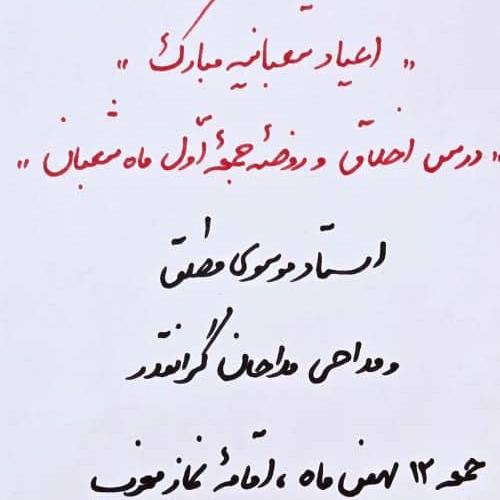 " اعیاد شعبانیه مبارک "
" درس اخلاق و روضهٔ جمعهٔ اوّل ماه شعبان "
استاد موسوی مطلق
و مداحی مداحان گرانقدر
جمعه ۱۲ بهمن ماه ، اقامهٔ نماز مغرب